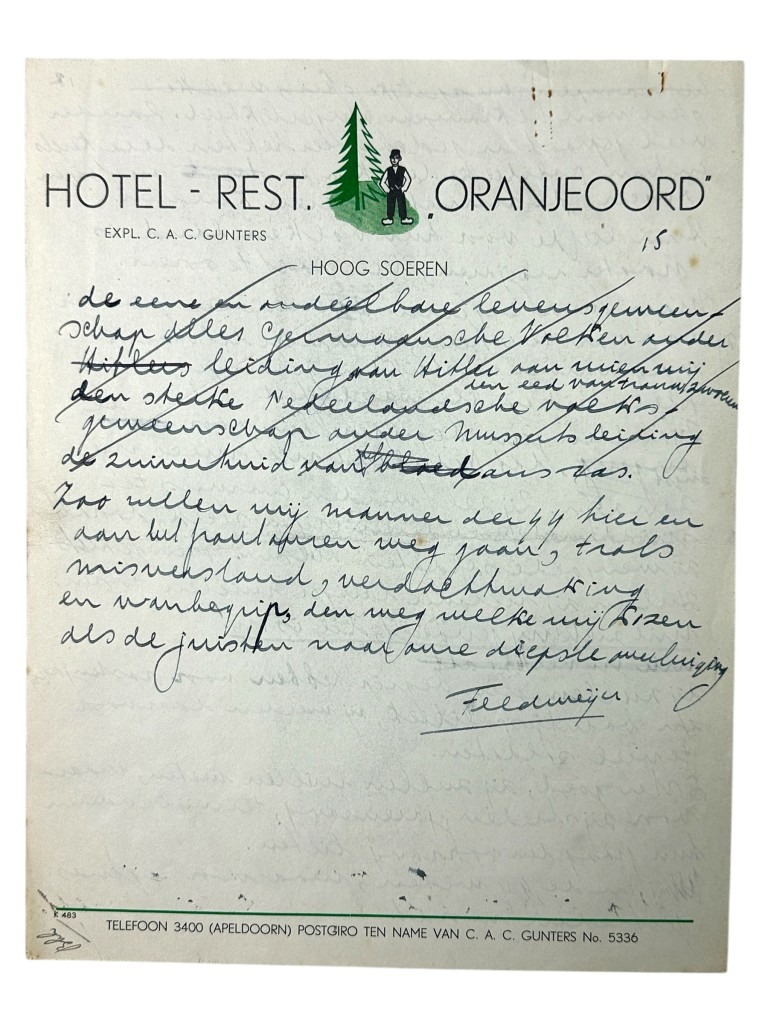 HOTEL - REST. „ORANJEOORD"
EXPL. C. A. C. GUNTERS
15
HOOG SOEREN
de eene en ondeelbare levensgemeen-
schap alles Germaansche Volken onder
Hitlers leiding van Hitler aan wien wij
een eed van trouw zwoeren
den sterke Nederlandsche volks-
gemeenschap onder Musserts leiding
de zuiverheid van het bloed ons ras.
Zoo willen wij mannen der SS hier en
aan het front onzen weg gaan, trots
misverstand, verdachtmaking
en wanbegrip, den weg welke wij kozen
als de juisten naar onze diepste overtuiging
Feldmeijer
K 483
TELEFOON 3400 (APELDOORN) POSTGIRO TEN NAME VAN C. A. C. GUNTERS No. 5336